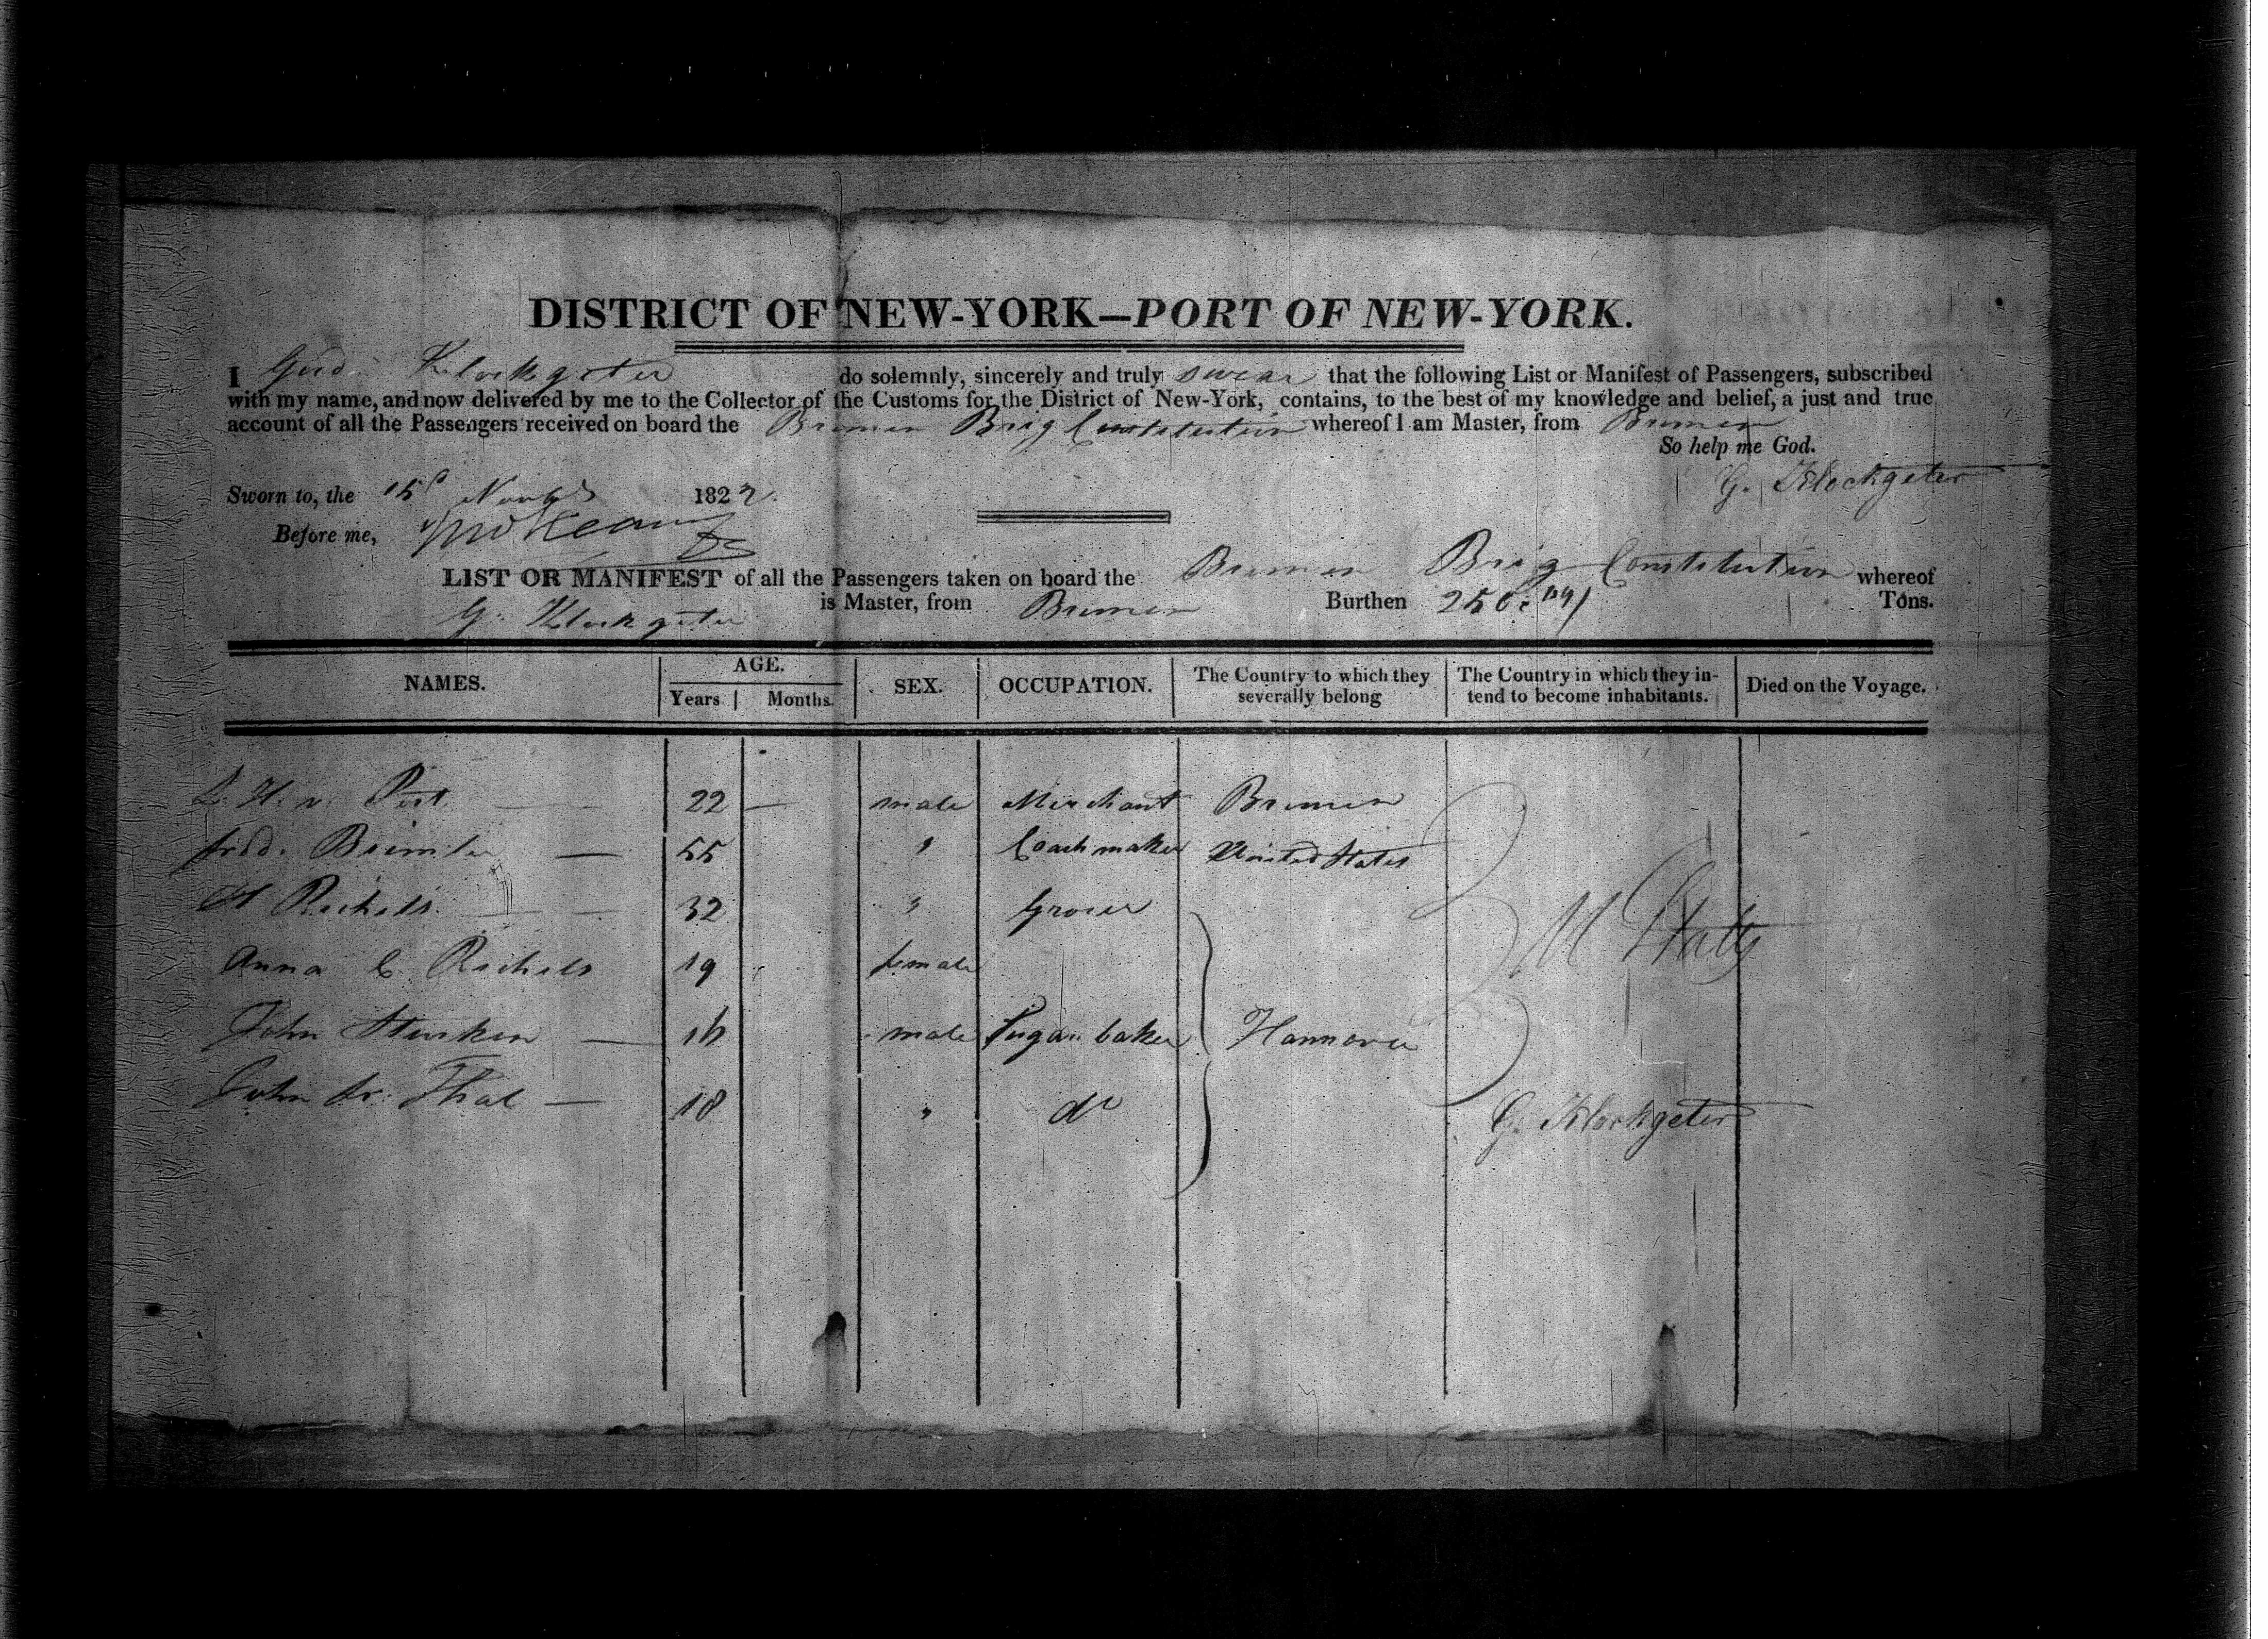 DISTRICT OF NEW-YORK—PORT OF NEW-YORK.
I Gerd. Klockgeter do solemnly, sincerely and truly swear that the following List or Manifest of Passengers, subscribed
with my name, and now delivered by me to the Collector of the Customs for the District of New-York, contains, to the best of my knowledge and belief, a just and true
account of all the Passengers received on board the Bremen Brig Constitution whereof I am Master, from Bremen
So help me God.
G. Klockgeter
Sworn to, the 15 1822.
Before me,
LIST OR MANIFEST of all the Passengers taken on board the Bremen Brig Constitution whereof
G. Klockgeter is Master, from Bremen Burthen Tons.
NAMES. AGE. Years Months. SEX. OCCUPATION. The Country to which they severally belong The Country in which they intend to become inhabitants. Died on the Voyage.
L. H. v. Post — — 22 — male Merchant Bremen
fred. — 55 " Coachmaker United States
H Richels — — 32 " Grocer
Anna C. Richels 19 female
John — 16 male Sugar baker Hannover
John fr. Thal — 18 " do
G. Klockgeter